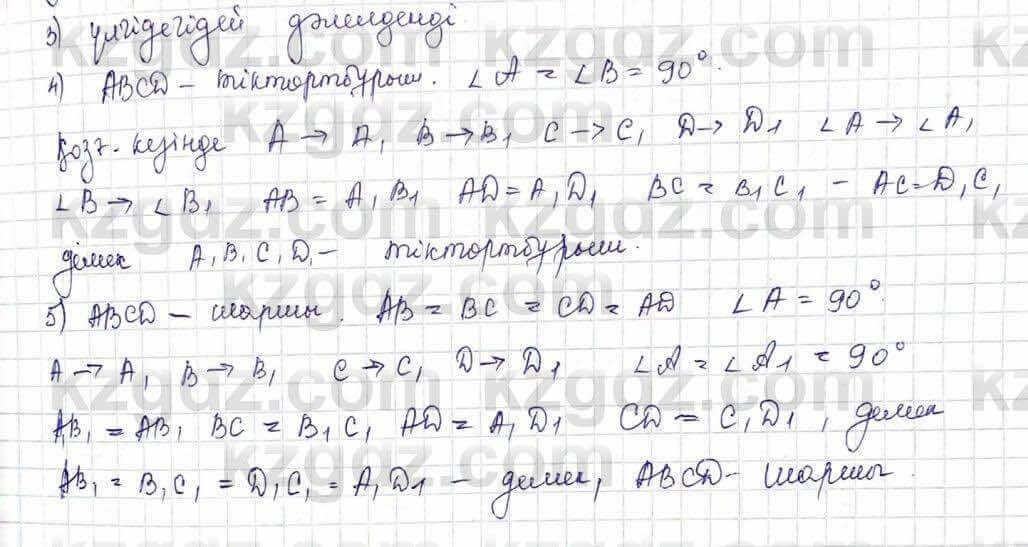 3) үлгідегідей дәлелденді.
4) ABCD – тіктөртбұрыш. ∠A = ∠B = 90°.
қозғ. кезінде A → A₁ B → B₁ C → C₁ D → D₁ ∠A → ∠A₁
∠B → ∠B₁ AB = A₁B₁ AD = A₁D₁ BC = B₁C₁ – AC = D₁C₁
демек A₁B₁C₁D₁ – тіктөртбұрыш.
5) ABCD – шаршы. AB = BC = CD = AD ∠A = 90°.
A → A₁ B → B₁ C → C₁ D → D₁ ∠A = ∠A₁ = 90°
AB₁ = AB₁ BC = B₁C₁ AD = A₁D₁ CD = C₁D₁, демек
AB₁ = B₁C₁ = D₁C₁ = A₁D₁ – демек, ABCD – шаршы.